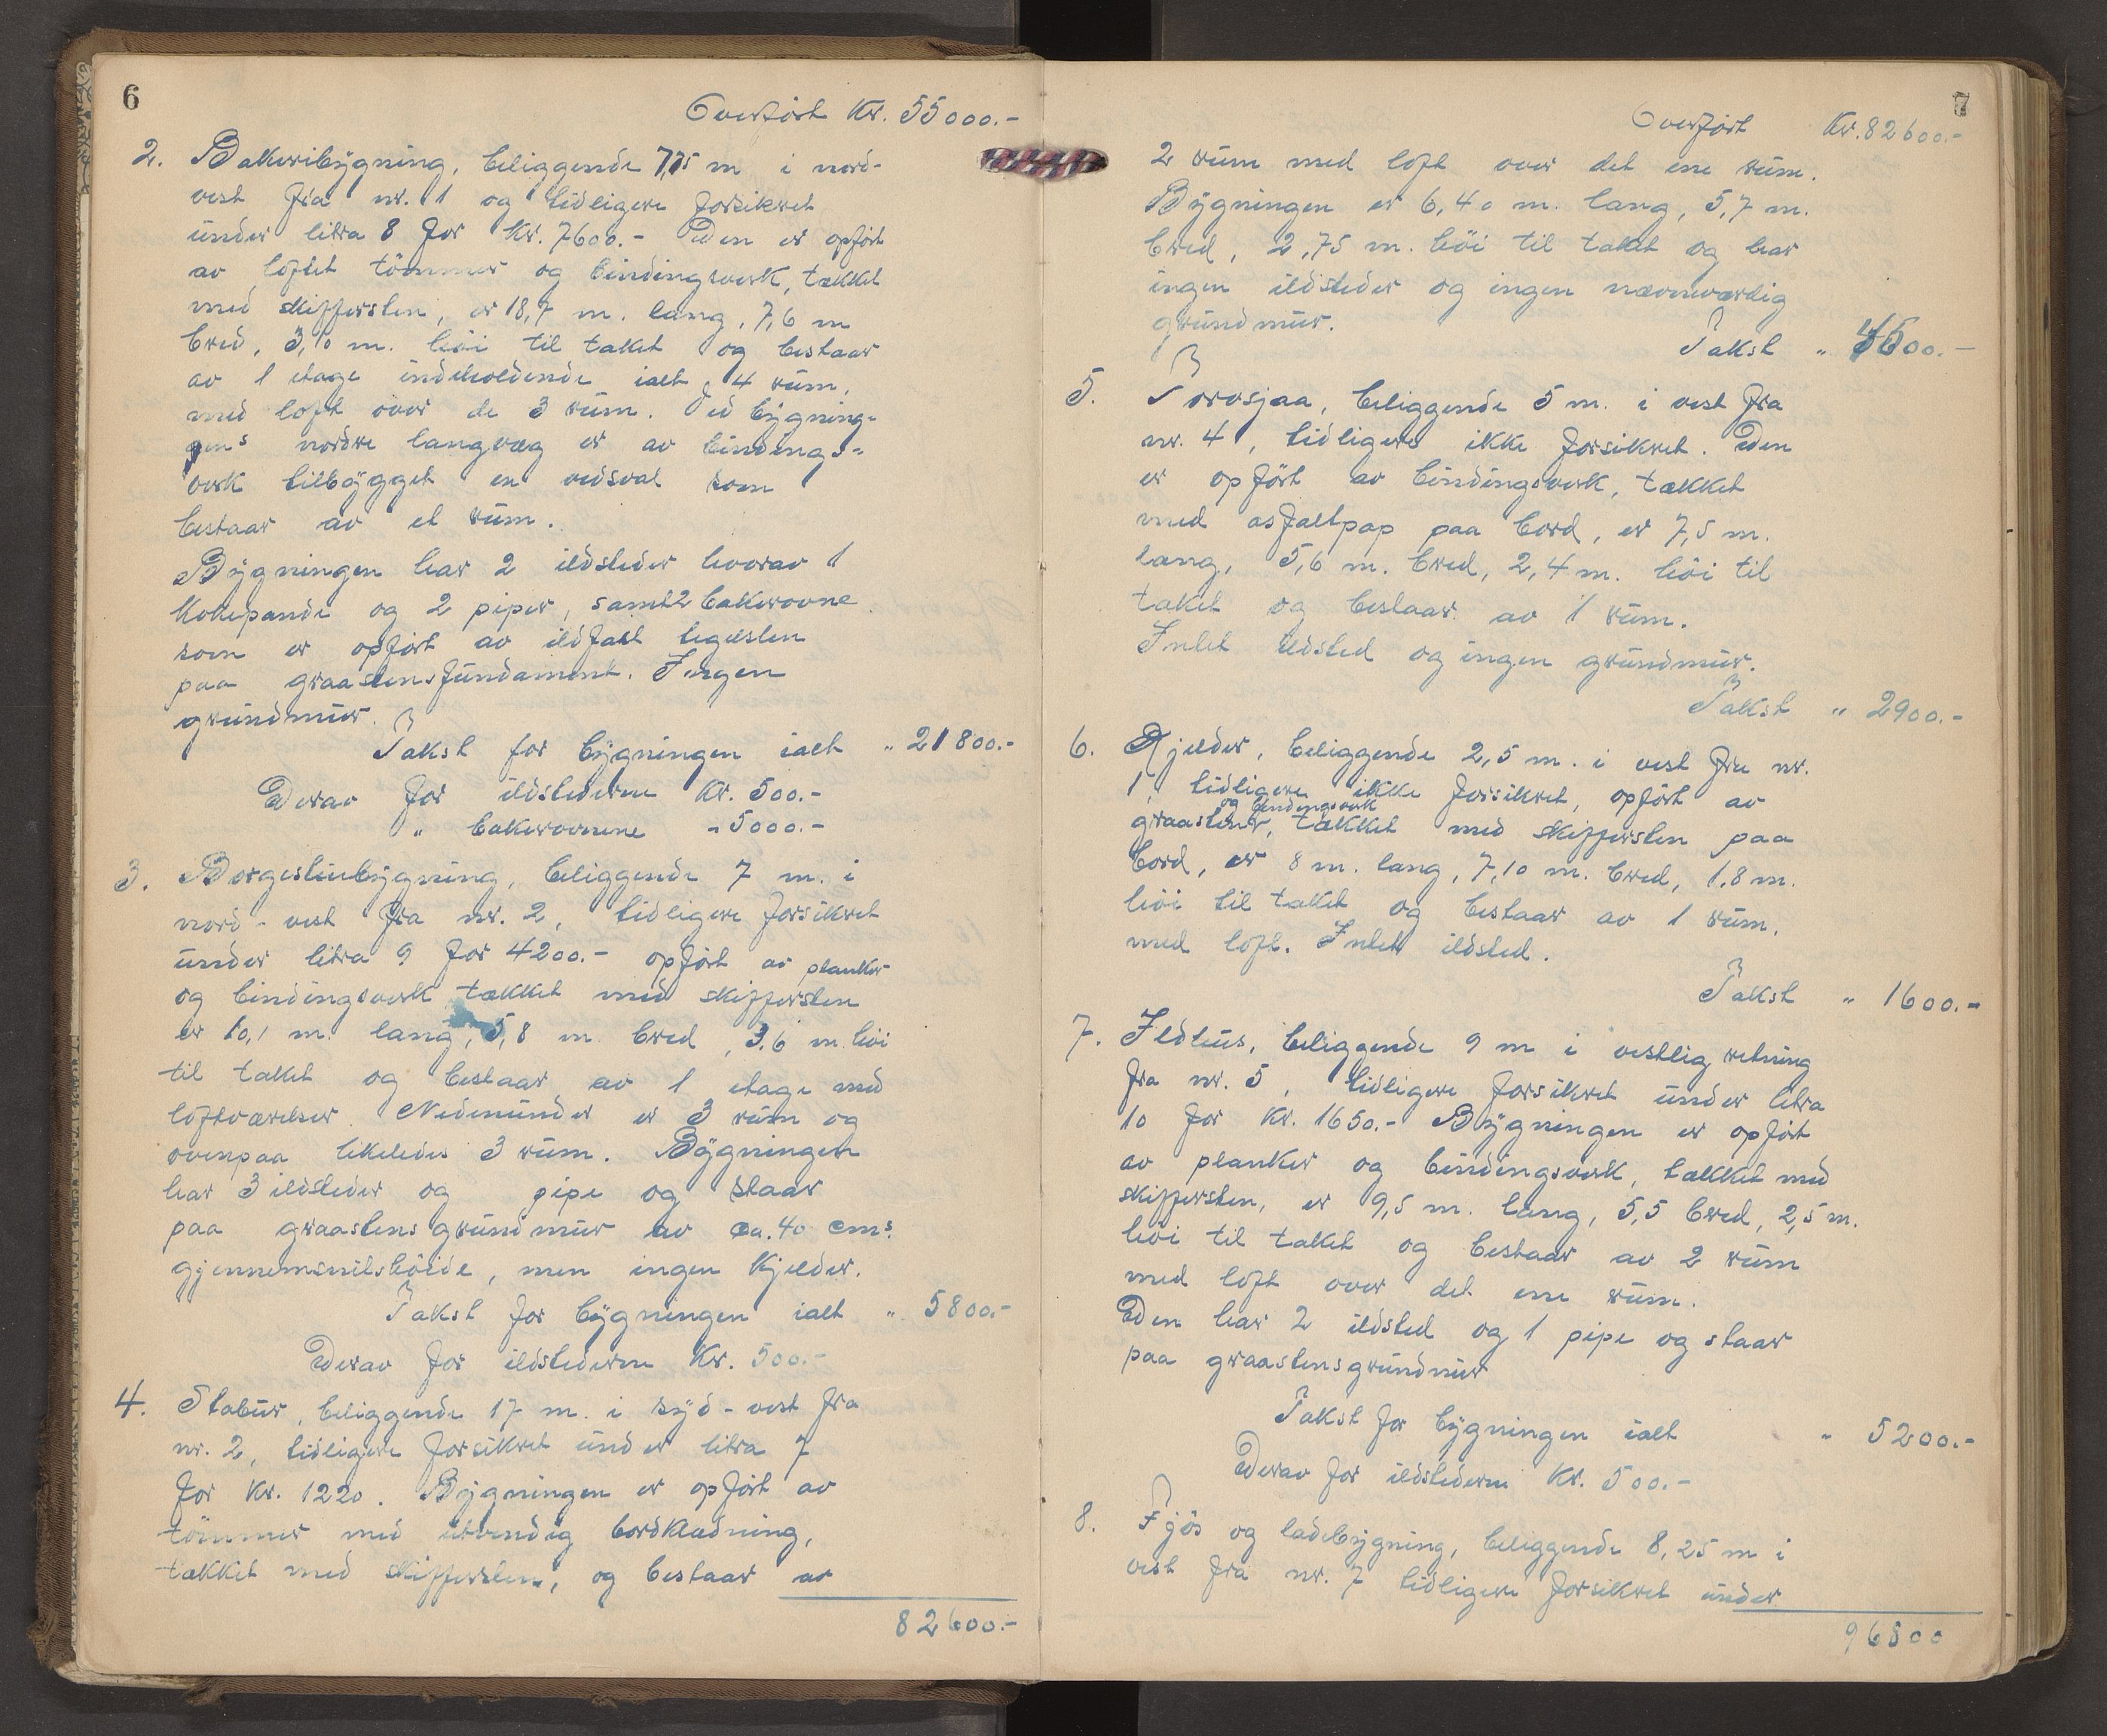 6
Overført Kr. 55000.-
2. Bakeribygning, beliggende 7,75 m i nord-
vest fra nr. 1 og tidligere forsikret
under litra 8 for Kr. 7600.- Den er opført
av loftet tømmer og bindingsverk, tækket
med skiffersten, er 18,7 m. lang, 7,6 m
bred, 3,10 m. høi til taket og bestaar
av 1 etage indeholdende ialt 4 rum,
med loft over de 3 rum. Ved bygning-
ens nordre langvæg er av bindings-
verk tilbygget en vedsval som
bestaar av et rum.
Bygningen har 2 ildsteder hvorav 1
kokepande og 2 piper, samt 2 bakerovne
som er opført av ildfast teglsten
paa graastensfundament. Ingen
grundmur.
Takst for bygningen ialt " 21800.-
Derav for ildstederne Kr. 500.-
" bakerovnene - 5000.-
3. Borgestuebygning, beliggende 7 m. i
nord-vest fra nr. 2, tidligere forsikret
under litra 9 for 4200.- opført av planker
og bindingsverk tækket med skiffersten
er 10,1 m. lang, 5,8 m bred, 3,6 m høi
til taket og bestaar av 1 etage med
loftværelser. Nedenunder er 3 rum og
ovenpaa likeledes 3 rum. Bygningen
har 3 ildsteder og pipe og staar
paa graastens grundmur av ca. 40 cms.
gjennemsnitshøide, men ingen kjelder.
Takst for bygningen ialt " 5800.-
Derav for ildstederne Kr. 500.-
4. Stabur, beliggende 17 m. i syd-vest fra
nr. 2, tidligere forsikret under litra 7
for Kr. 1220. Bygningen er opført av
tømmer med utvendig bordklædning,
tækket med skiffersten, og bestaar av
82600.-
7
Overført Kr. 82600.-
2 rum med loft over det ene rum.
Bygningen er 6,40 m. lang, 5,7 m.
bred, 2,75 m. høi til taket og har
ingen ildsteder og ingen nævneværdig
grundmur.
Takst " 4500.-
5. Torvsjaa, beliggende 5 m. i vest fra
nr. 4, tidligere ikke forsikret. Den
er opført av bindingsverk, tækket
med asfaltpap paa bord, er 7,5 m.
lang, 5,6 m. bred, 2,4 m. høi til
taket og bestaar av 1 rum.
Intet ildsted og ingen grundmur.
Takst " 2900.-
6. Kjelder, beliggende 2,5 m. i vest fra nr.
1, tidligere ikke forsikret, opført av
og bindingsverk
graasten, tækket med skiffersten paa
bord, er 8 m. lang, 7,10 m. bred, 1.8 m.
høi til taket og bestaar av 1 rum,
med loft. Intet ildsted.
Takst " 1600.-
7. Ildhus, beliggende 9 m i vestlig retning
fra nr. 5, tidligere forsikret under litra
10 for Kr. 1650.- Bygningen er opført
av planker og bindingsverk, tækket med
skiffersten, er 9,5 m. lang, 5,5 bred, 2,5 m.
høi til taket og bestaar av 2 rum
med loft over det ene rum.
Den har 2 ildsted og 1 pipe og staar
paa graastensgrundmur
Takst for bygningen ialt " 5200.-
Derav for ildstederne Kr. 500.-
8. Fjøs og ladebygning, beliggende 8,25 m i
vest fra nr. 7 tidligere forsikret under
96800